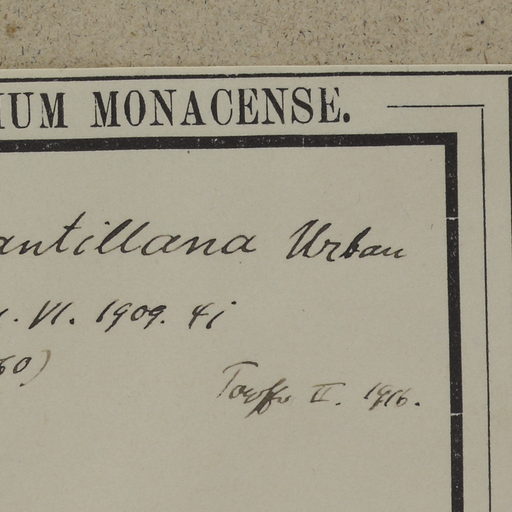 IUM MONACENSE.
antillana Urban
. VI. 1909. 41
60)
II. 1916.